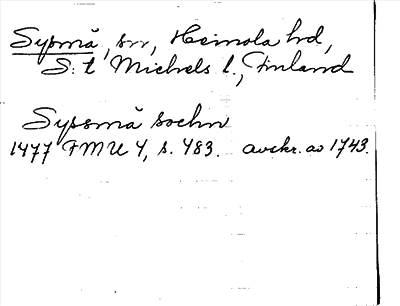 Sysmä, sn, Heinola hd,
S:t Michels l., Finland
Syssmä sochn
1477 FMU 4, s. 483. avskr. av 1743.